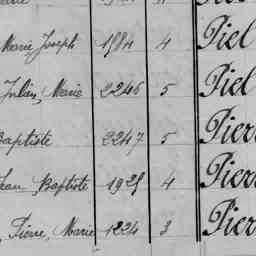 Marie Joseph 1984 4 Piel
Julien, Marie 2246 5 Piel
Baptiste 2247 5 Pierr
Jean Baptiste 1925 4 Pierr
, Pierre, Marie 1224 3 Pierr